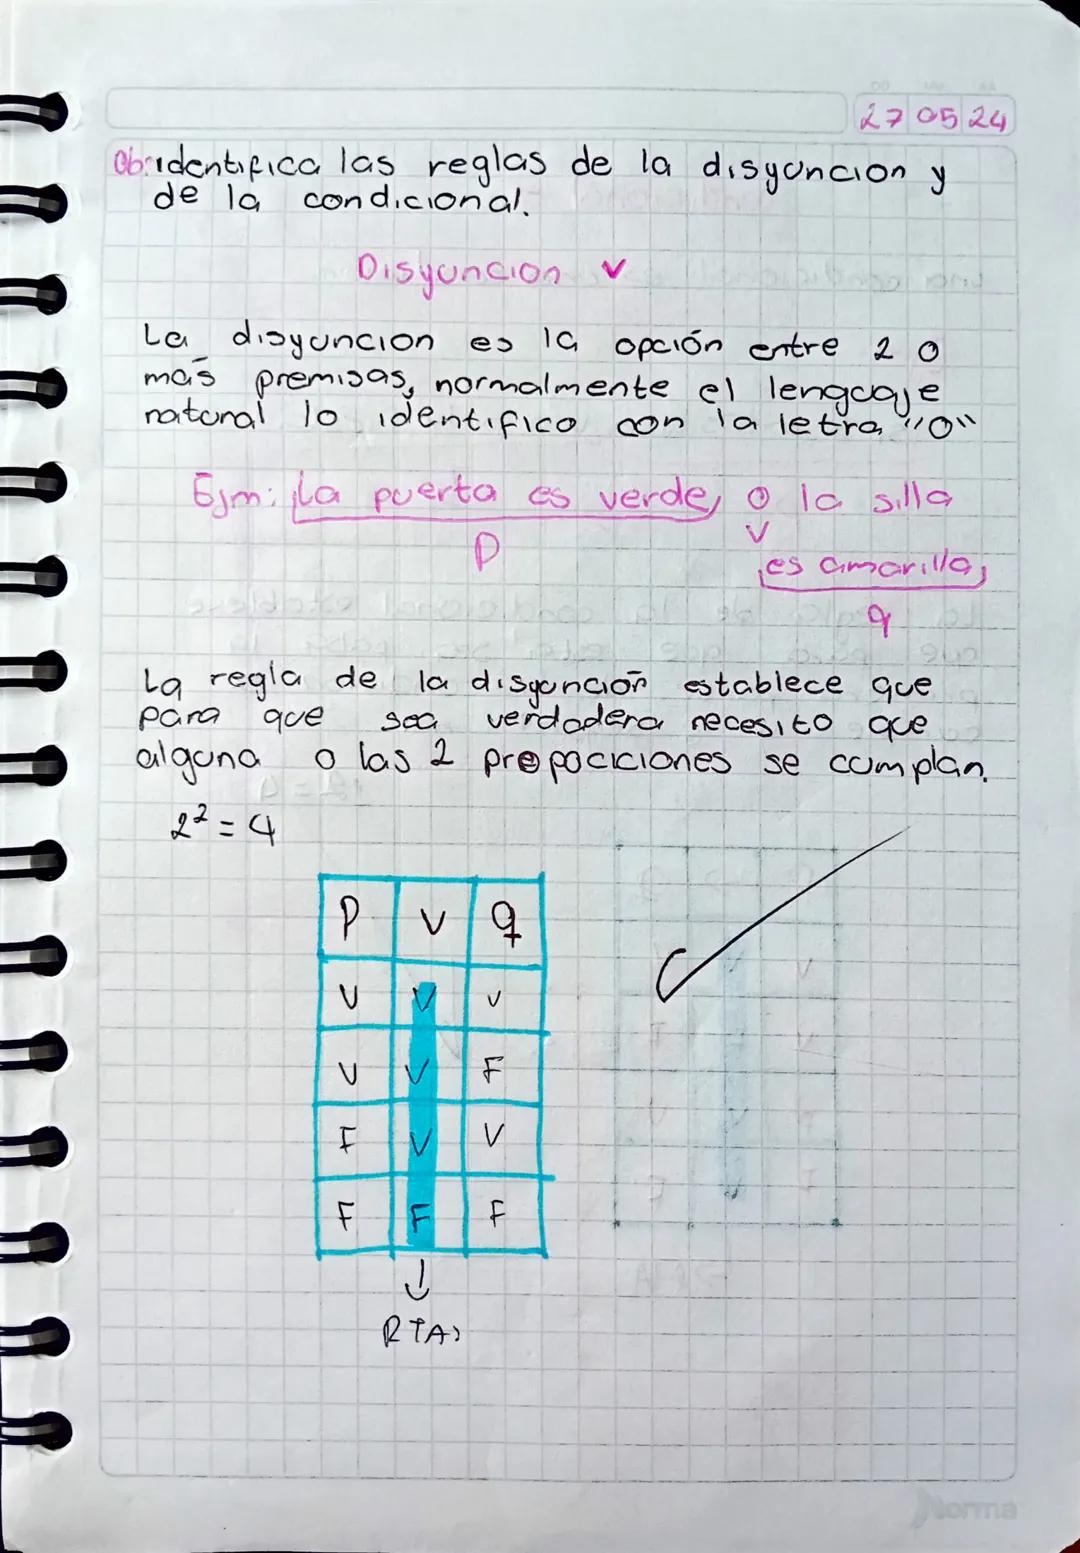 27 05 24
Ob: identifica las reglas de la disyuncion y
de la condicional.
Disyuncion v
La disyuncion es la opción entre 2 o
más premisas, normalmente el lenguaje
natural lo identifico con la letra "O"
Ejm: La puerta es verde, o la silla
v
p
es amarilla,
q
La regla de la disyunción establece que
para que sea verdadera necesito que
alguna o las 2 propociciones se cumplan.
2² = 4
p v q
V V V
V V F
F V V
F F F
↓
RTA>
Norma